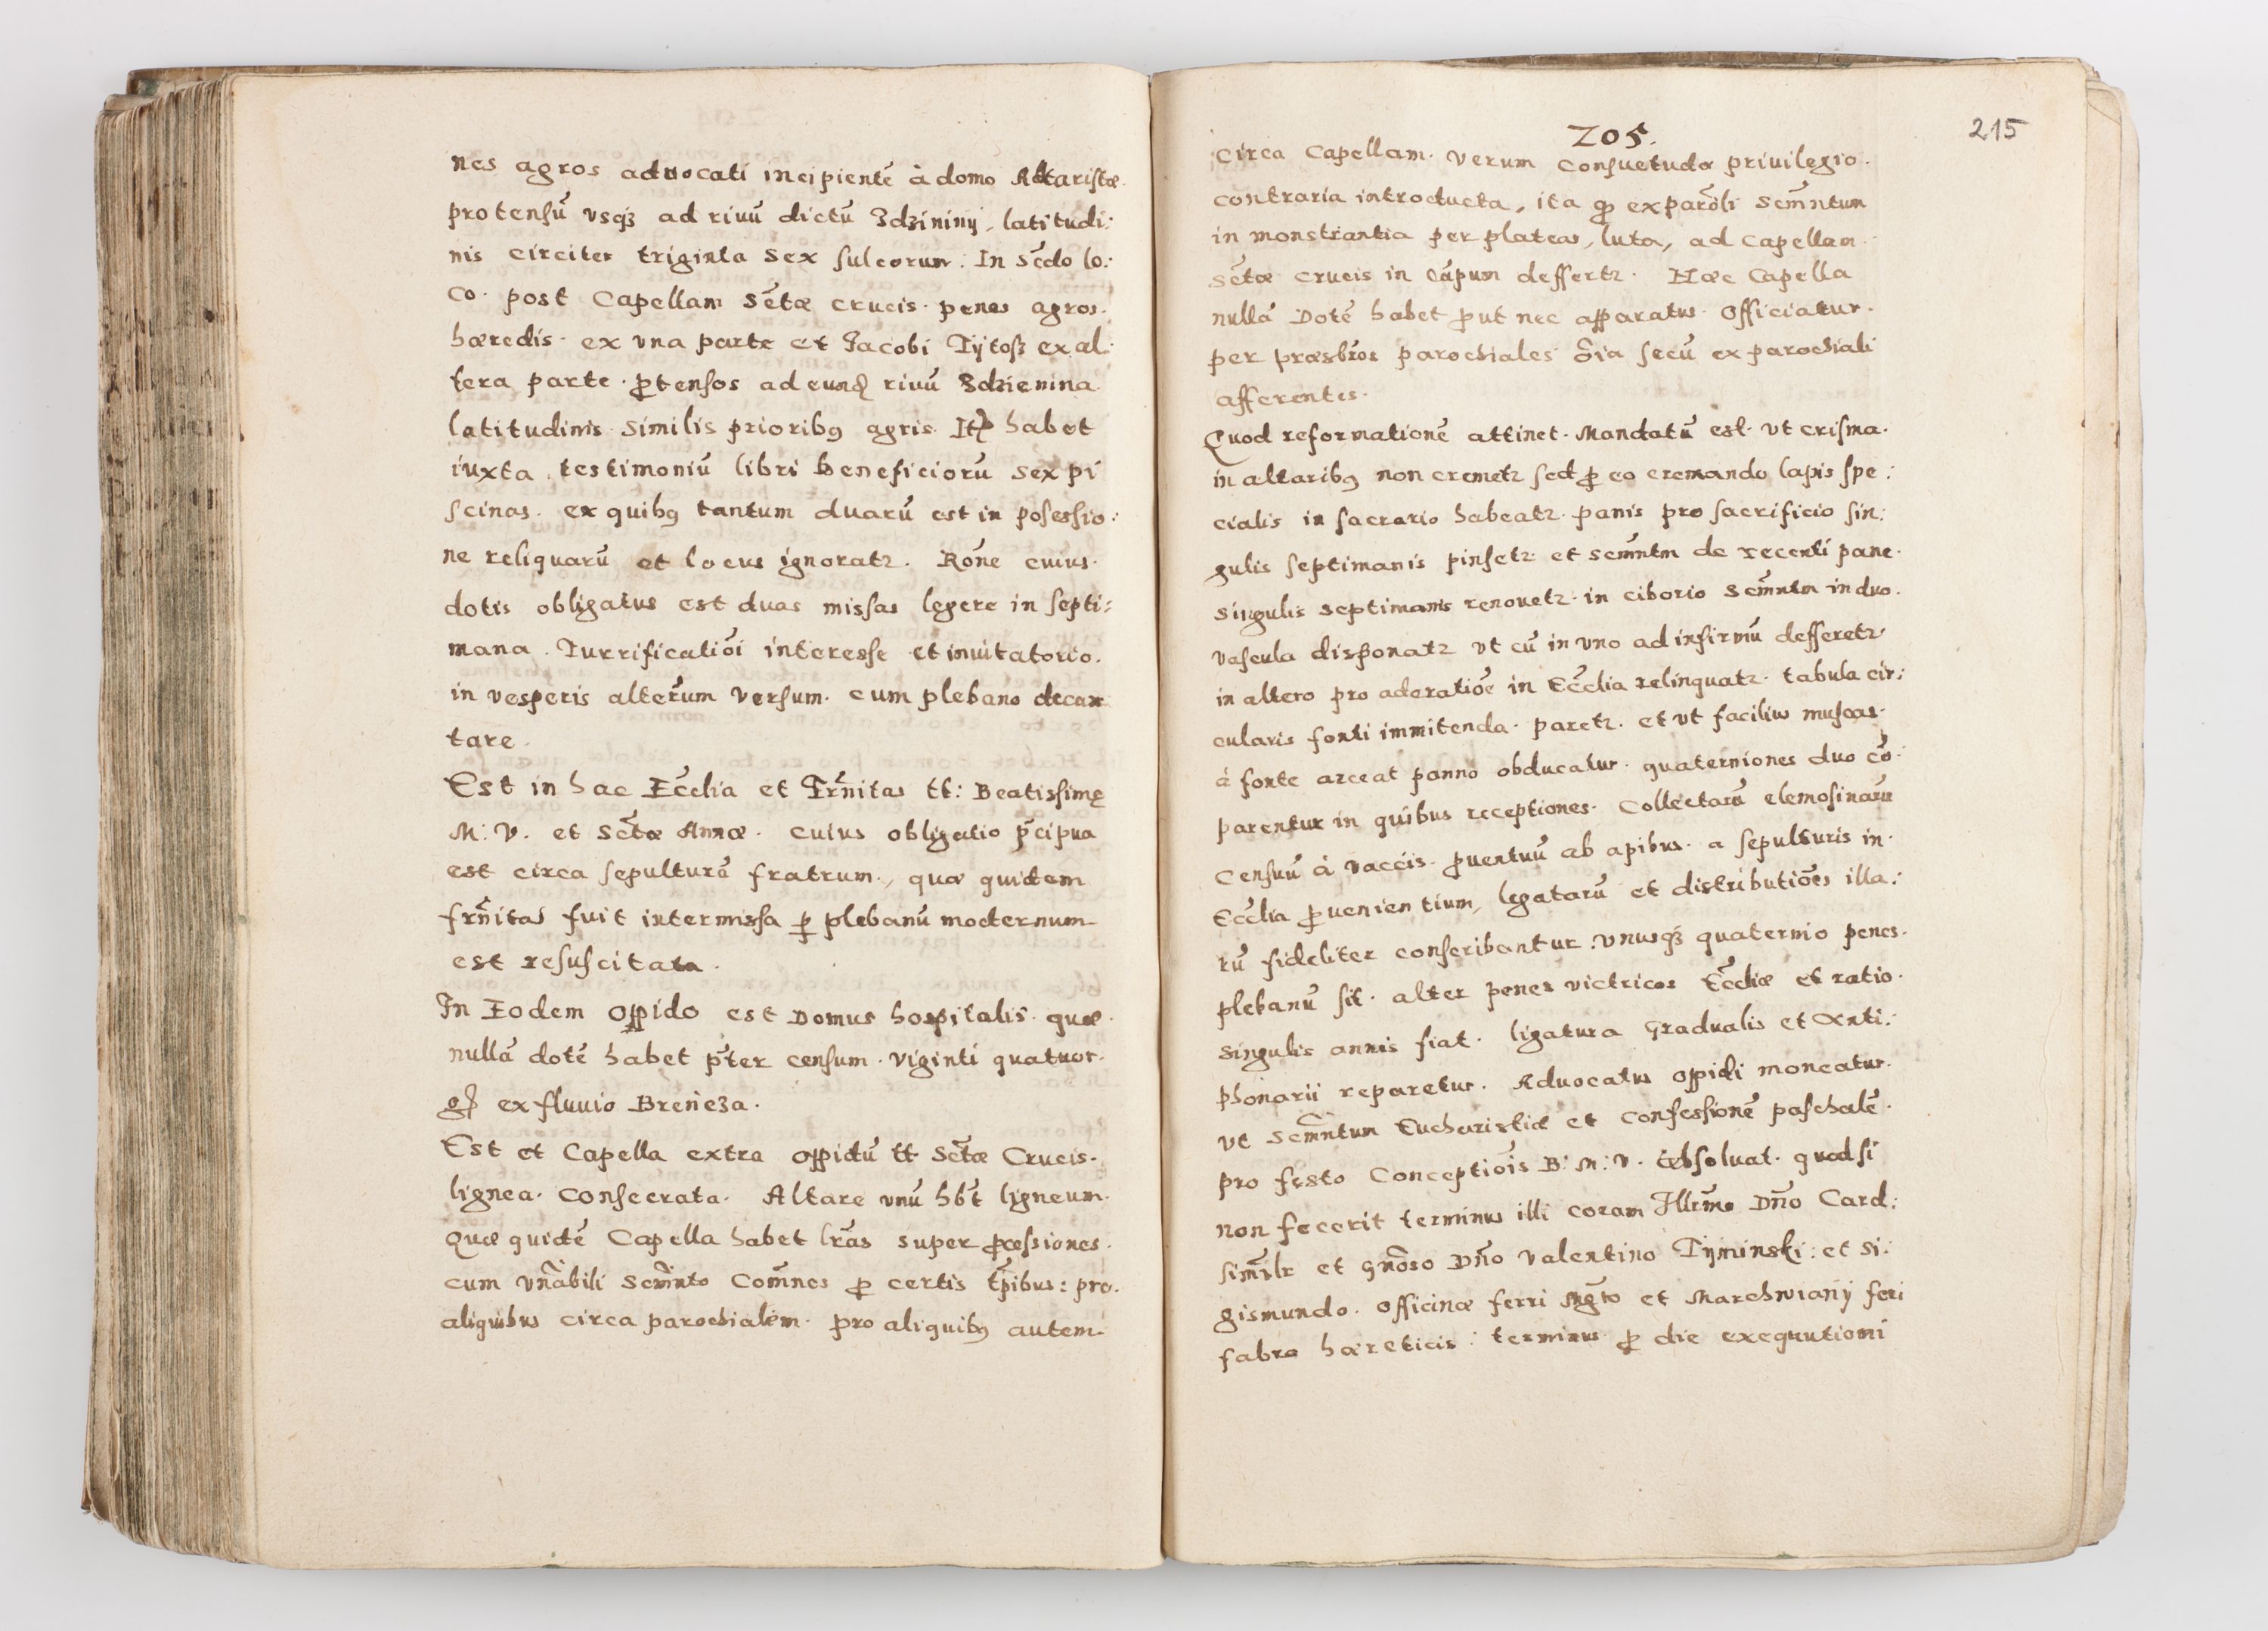 nes agros aduocati incipientē à domo Altaristæ.
protensū vsqȝ ad riuū dictū Zdzininÿ, latitudi:
nis circiter triginta sex sulcorum. In sc̄do lo:
co. post Capellam sc̄tæ crucis. penes agros.
hæredis. ex vna parte et Jacobi Tÿtosz ex al:
tera parte. ꝓtensos ad eund riuū Zdzienina
latitudinis similis prioribꝰ agris. Itē habet
iuxta testimoniū libri beneficiorū sex pi
scinas. ex quibꝰ tantum duarū est in posessio:
ne reliquarū et locus ignoratz. Rōne cuius.
dotis obligatus est duas missas legere in septi:
mana. Turrificatiōi interesse et inuitatorio.
in vesperis alterūm versum. cum plebano decan
tare.
Est in hac Ecc̄lia et Frn̄itas tt: Beatissimę
M: V. et Sc̄tæ Annæ. cuius obligatio p̄cipua
est circa sepulturā fratrum., quæ quidem
frn̄itas fuit intermissa ꝑ plebanū modernum
est resuscitata.
In Eodem oppido est Domus hospitalis. quæ.
nullā dotē habet p̄ter censum. viginti quatuor.
gꝭ ex fluuio Brenieza.
Est et Capella extra oppidū tt. Sc̄tæ Crucis.
lignea. Consecrata. Altare vnū hb̄t ligneum.
Quæ quidē Capella habet lr̄as super ꝓcessiones.
cum vn̄abili Scm̄nto Com̄nes ꝓ certis tp̄ibus: pro.
aliquibus circa parochialem. pro aliquibꝰ autem.
205.
215
circa Capellam. verum Consuetudo priuilegio.
contraria introducta, ita qꝫ ex parōli Scm̄ntum
in monstrantia per plateas, luta, ad Capellam.
sc̄tæ crucis in cāpum deffertz. Hæc Capella
nullā Dotē habet ꝓut nec apparatus. officiatur.
per præsbr̄os parochiales ōia secū ex parochiali
afferentes.
Quod reformationē attinet. Mandatū est. vt crisma.
in altaribꝰ non cremetz sed ꝓ eo cremando lapis spe:
cialis in sacrario habeatz. panis pro sacrificio sin:
gulis septimanis pinsetz et scm̄ntm de recenti pane.
singulis septimanis renouetz. in ciborio Scm̄ntm in duo.
vascula disponatz vt cū in vno ad infirmū defferetz.
in altero pro adoratiōe in Ecc̄lia relinquatz. tabula cir:
cularis fonti immitenda. paretz. et vt facilius muscas.
à fonte arceat panno obducatur. quaterniones duo cō:
parentur in quibus receptiones. Collectarū elemosinarū
Censuū à vaccis. ꝓuentuū ab apibus. a sepulturis in.
Ecc̄lia ꝓuenientium, legatarū et distributiōes illa:
rū fideliter conscribantur. vnusqȝ quaternio penes.
plebanū sit. alter penes victricos Ecc̄liæ et ratio.
singulis annis fiat. ligatura Gradualis et Anti:
phonarii reparetur. Aduocatus oppidi moneatur.
vt scm̄ntum Eucharistiæ et confessionē paschalē.
pro festo Conceptiōis B: M: V. absoluat. quod si
non fecerit terminus illi coram Illrm̄o Dn̄o Card:
sim̄ilr et gn̄oso Dn̄o Valentino Tÿminski: et Si:
gismundo. officinæ ferri Mgr̄o et Marchwianÿ feri
fabro hæreticis: terminus ꝓ die exequutioni